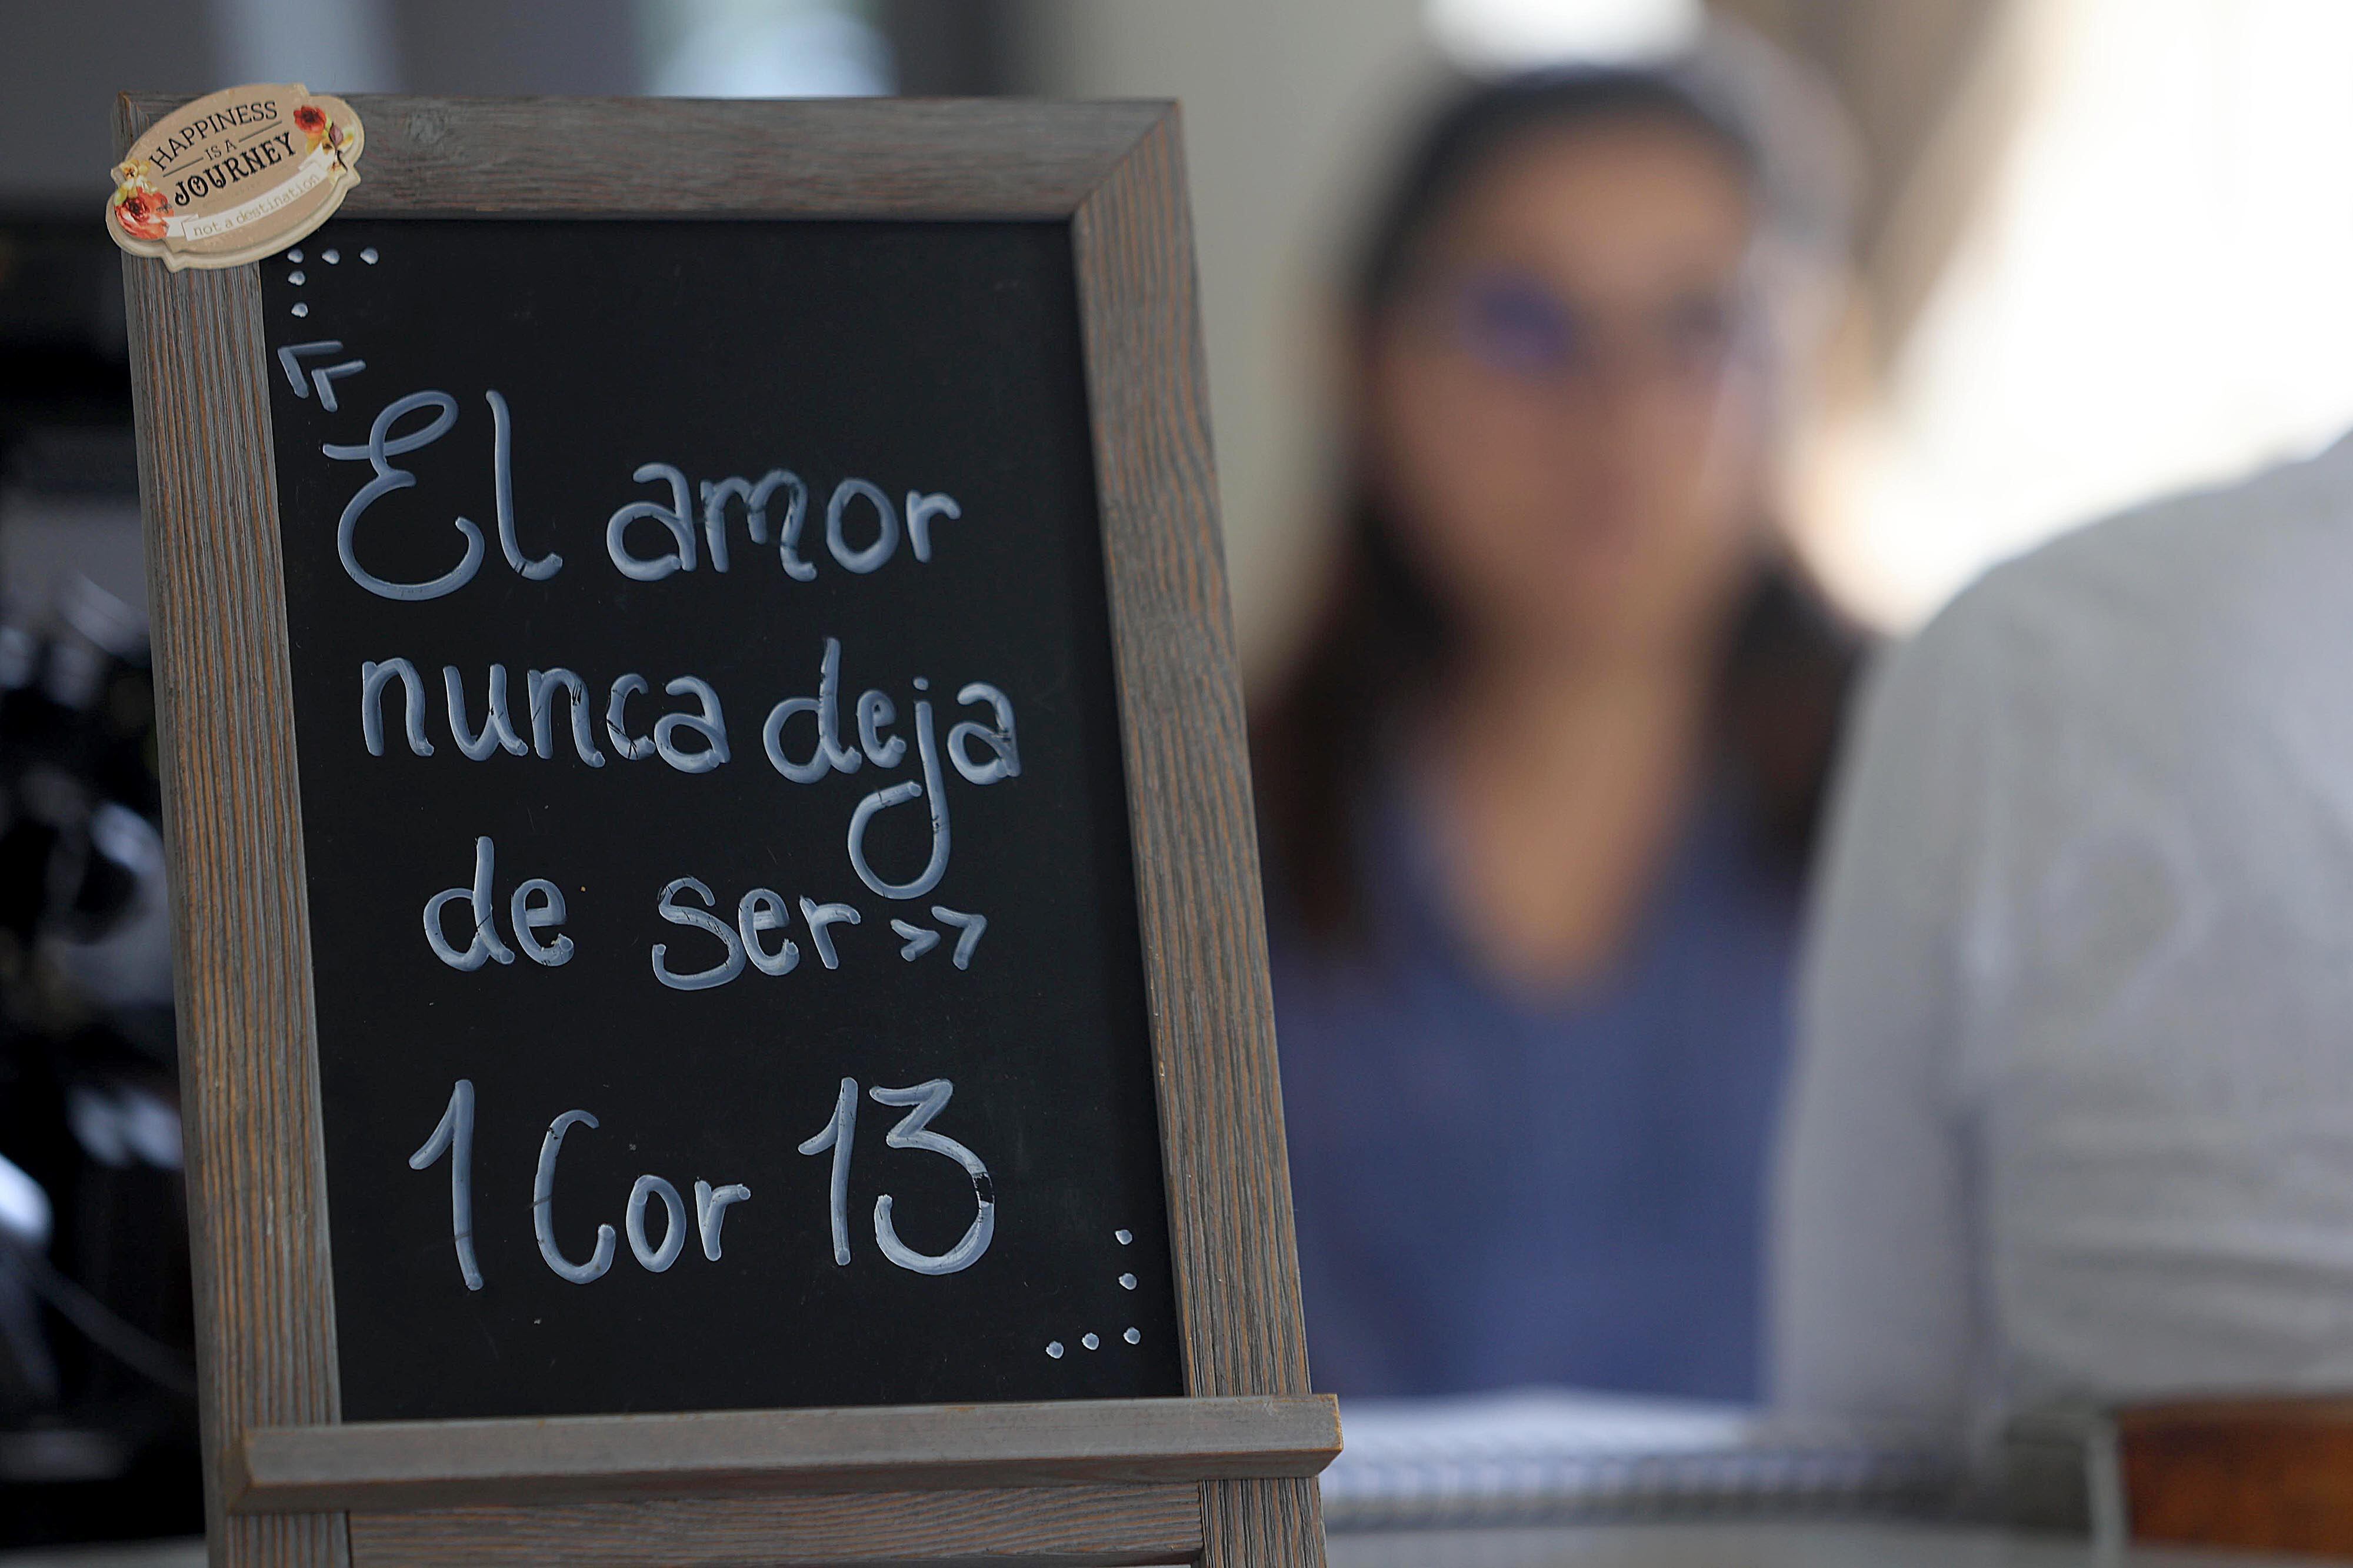 HAPPINESS
IS A
JOURNEY
not a destination
«El amor
nunca deja
de ser»
1 Cor 13